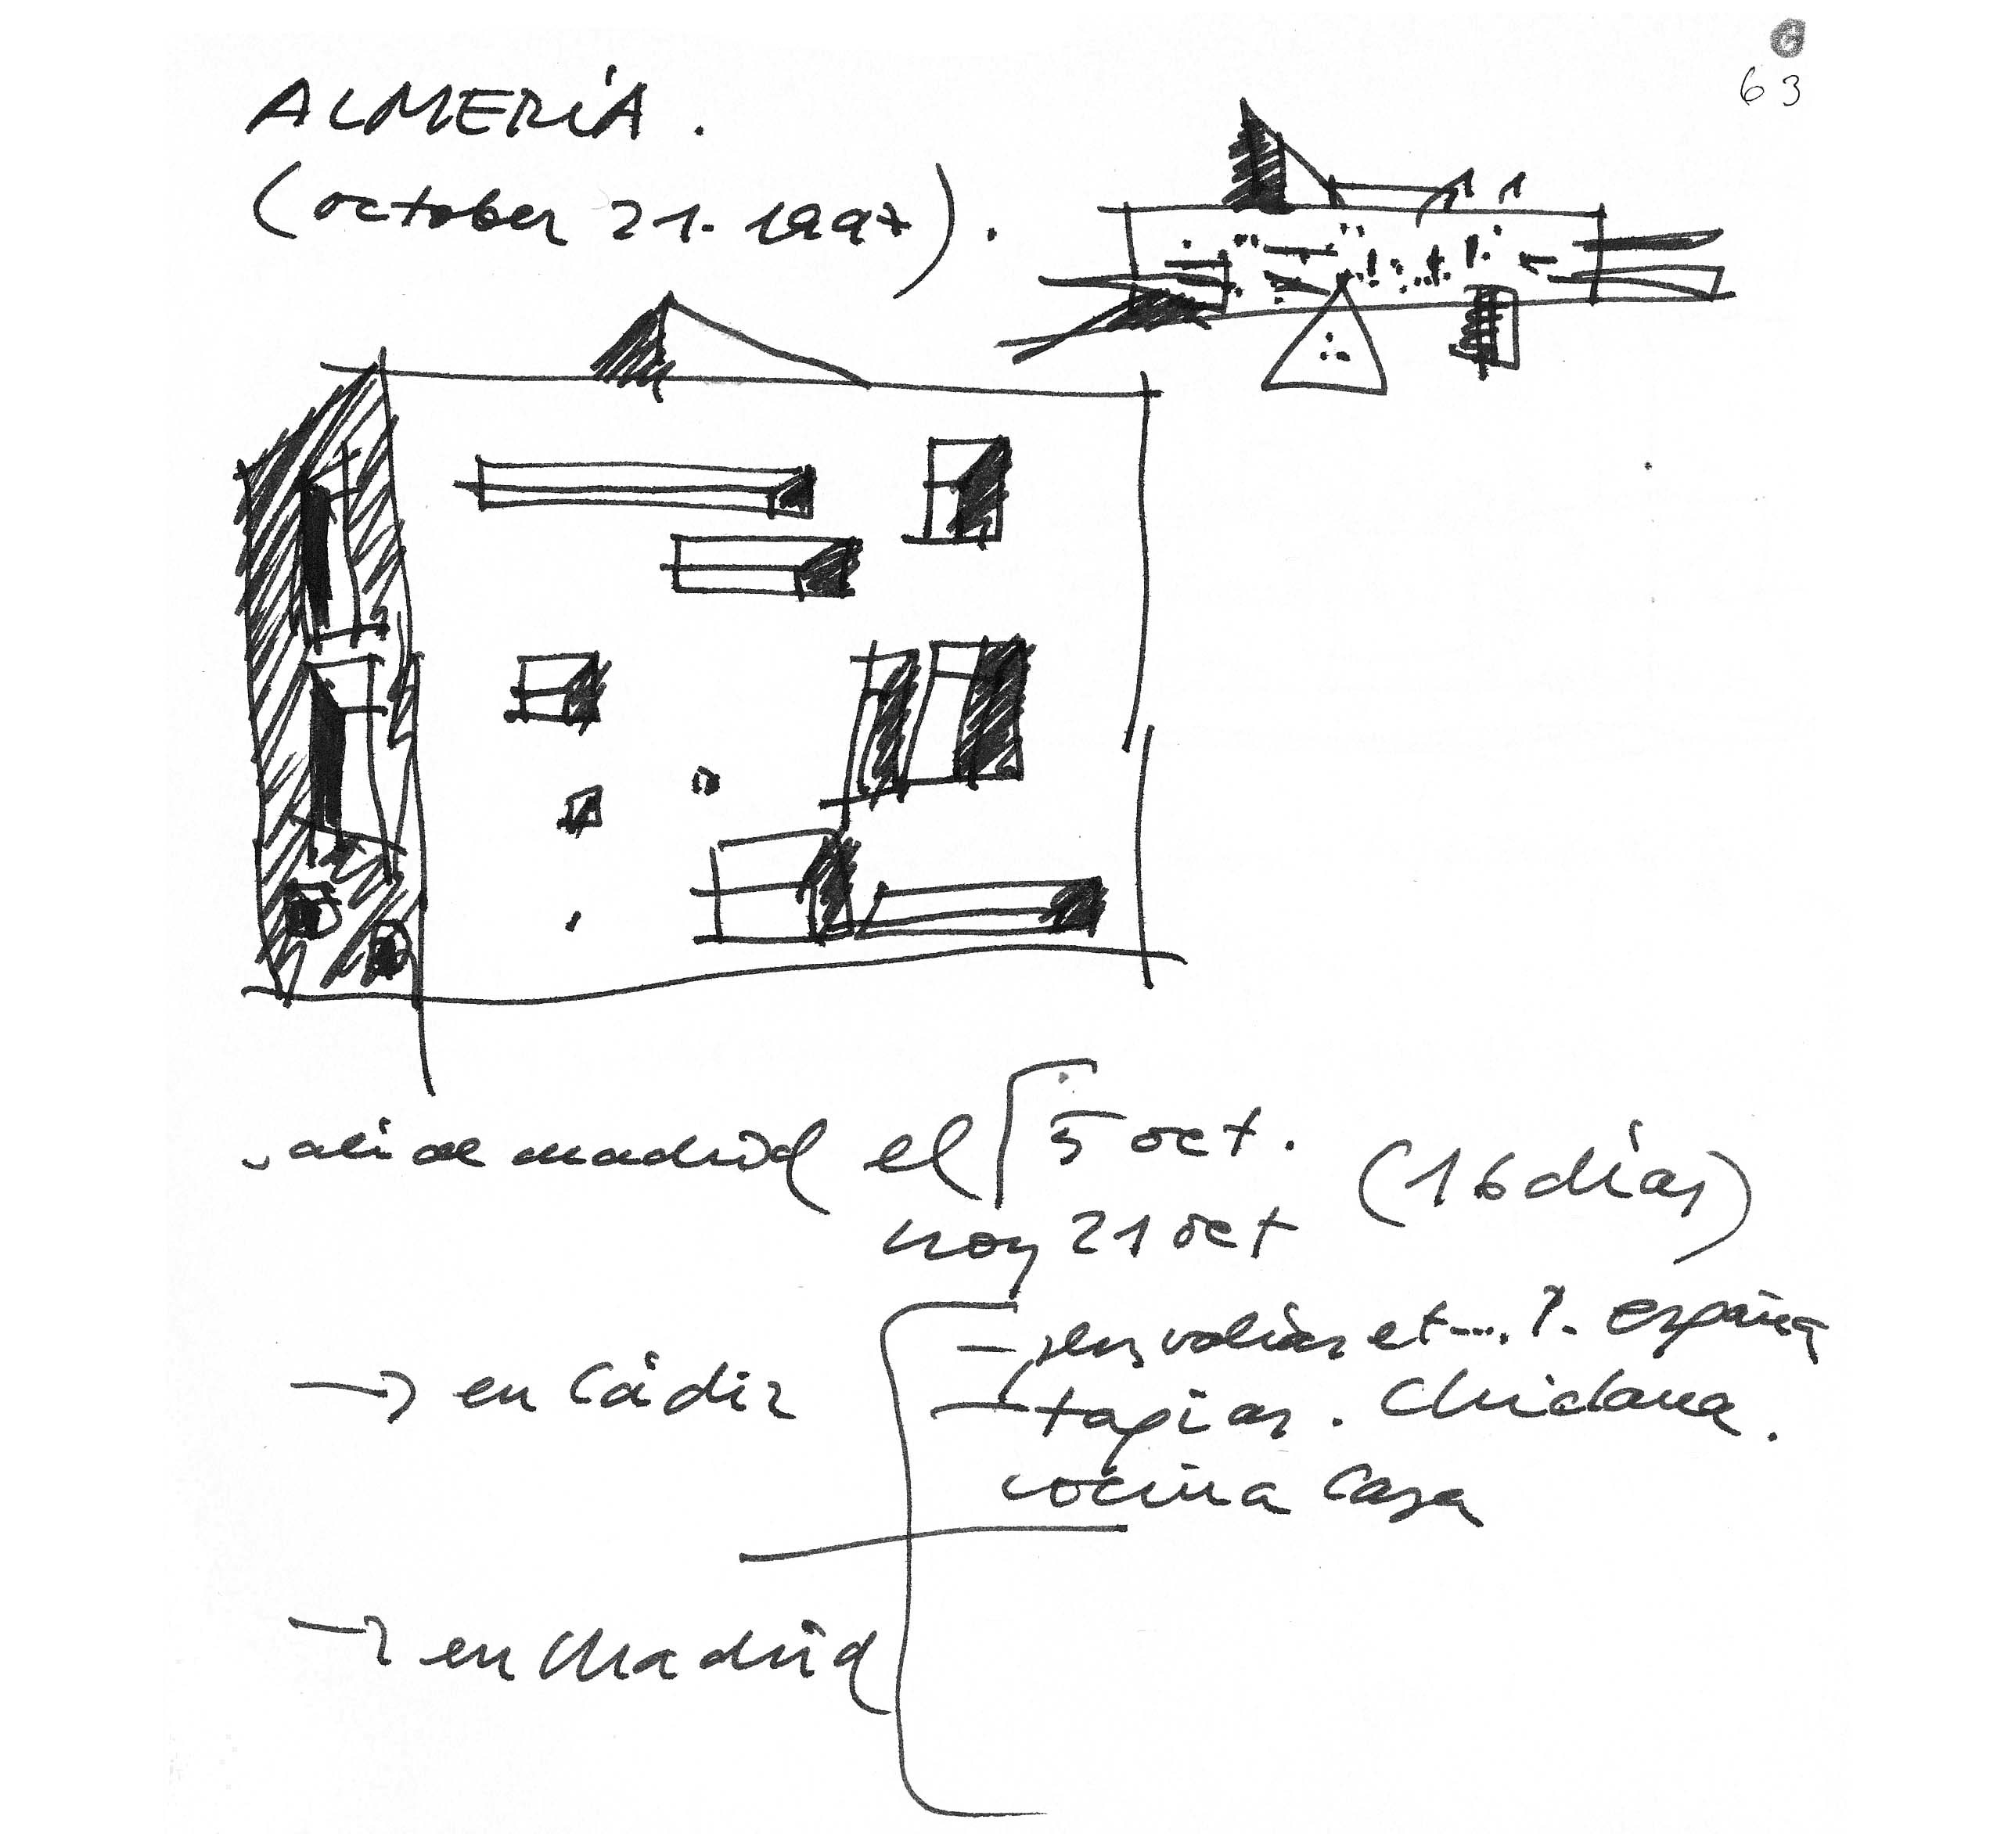 63
ALMERÍA.
(october 21. 1997).
salí de madrid el 5 oct. (16 días)
hoy 21 oct
→ en Cádiz
— et.... P. españa
— tapias. Chiclana.
cocina casa
→ en Madrid